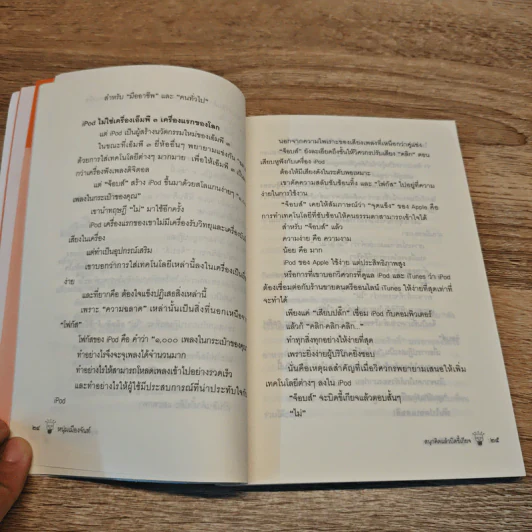 สำหรับ “มืออาชีพ” และ “คนทั่วไป”
iPod ไม่ใช่เครื่องเอ็มพี ๓ เครื่องแรกของโลก
แต่ iPod เป็นผู้สร้างนวัตกรรมใหม่ของเอ็มพี ๓
ในขณะที่เอ็มพี ๓ ยี่ห้ออื่นๆ พยายามแข่งกัน
ด้วยการใส่เทคโนโลยีต่างๆ มากมาย เพื่อให้เอ็มพี ๓ เป็น
กว่าเครื่องฟังเพลงดิจิตอล
แต่ “จ็อบส์” สร้าง iPod ขึ้นมาด้วยสโลแกนง่ายๆ
เพลงในกระเป๋าของคุณ”
เขานำทฤษฎี “ไม่” มาใช้อีกครั้ง
iPod เครื่องแรกของเขาไม่มีเครื่องรับวิทยุและเครื่องบันทึก
เสียงในเครื่อง
แต่ทำเป็นอุปกรณ์เสริม
เขาบอกว่าการใส่เทคโนโลยีเหล่านี้ลงในเครื่องเป็นเรื่อง
ง่าย
และที่ยากคือ ต้องใจแข็งปฏิเสธสิ่งเหล่านี้
เพราะ “ความฉลาด” เหล่านั้นเป็นสิ่งที่นอกเหนือจาก
“โฟกัส”
โฟกัสของ iPod คือ คำว่า “๑,๐๐๐ เพลงในกระเป๋าของคุณ”
ทำอย่างไรจึงจะจุเพลงได้จำนวนมาก
ทำอย่างไรให้สามารถโหลดเพลงเข้าไปอย่างรวดเร็ว
และทำอย่างไรให้ผู้ใช้มีประสบการณ์ที่น่าประทับใจกับ
iPod
๒๔ หนุ่มเมืองจันท์
นอกจากความไพเราะของเสียงเพลงที่เหนือกว่าคู่แข่ง
“จ็อบส์” ยังละเอียดถึงขั้นให้วิศวกรปรับเสียง “คลิก” ตอน
เสียบหูฟังกับเครื่อง iPod
ต้องให้มีเสียงดังในระดับพอเหมาะ
เขาตัดความสลับซับซ้อนทิ้ง และ “โฟกัส” ไปอยู่ที่ความ
ง่ายในการใช้งาน
“จ็อบส์” เคยให้สัมภาษณ์ว่า “จุดแข็ง” ของ Apple คือ
การทำเทคโนโลยีที่ซับซ้อนให้คนธรรมดาสามารถเข้าใจได้
สำหรับ “จ็อบส์” แล้ว
ความง่าย คือ ความงาม
น้อย คือ มาก
iPod ของ Apple ใช้ง่าย แต่ประสิทธิภาพสูง
หรือการที่เขาบอกวิศวกรที่ดูแล iPod และ iTunes ว่า iPod
ต้องเชื่อมต่อกับร้านขายดนตรีออนไลน์ iTunes ให้ง่ายที่สุดเท่าที่
จะทำได้
เพียงแค่ “เสียบปลั๊ก” เชื่อม iPod กับคอมพิวเตอร์
แล้วก็ “คลิก-คลิก-คลิก...”
ทำทุกสิ่งทุกอย่างให้ง่ายที่สุด
เพราะยิ่งง่ายผู้บริโภคยิ่งชอบ
นั่นคือเหตุผลสำคัญที่เมื่อวิศวกรพยายามเสนอให้เพิ่ม
เทคโนโลยีต่างๆ ลงใน iPod
“จ็อบส์” จะบิดขี้เกียจแล้วตอบสั้นๆ
“ไม่”
สนุกคิดแล้วบิดขี้เกียจ ๒๕